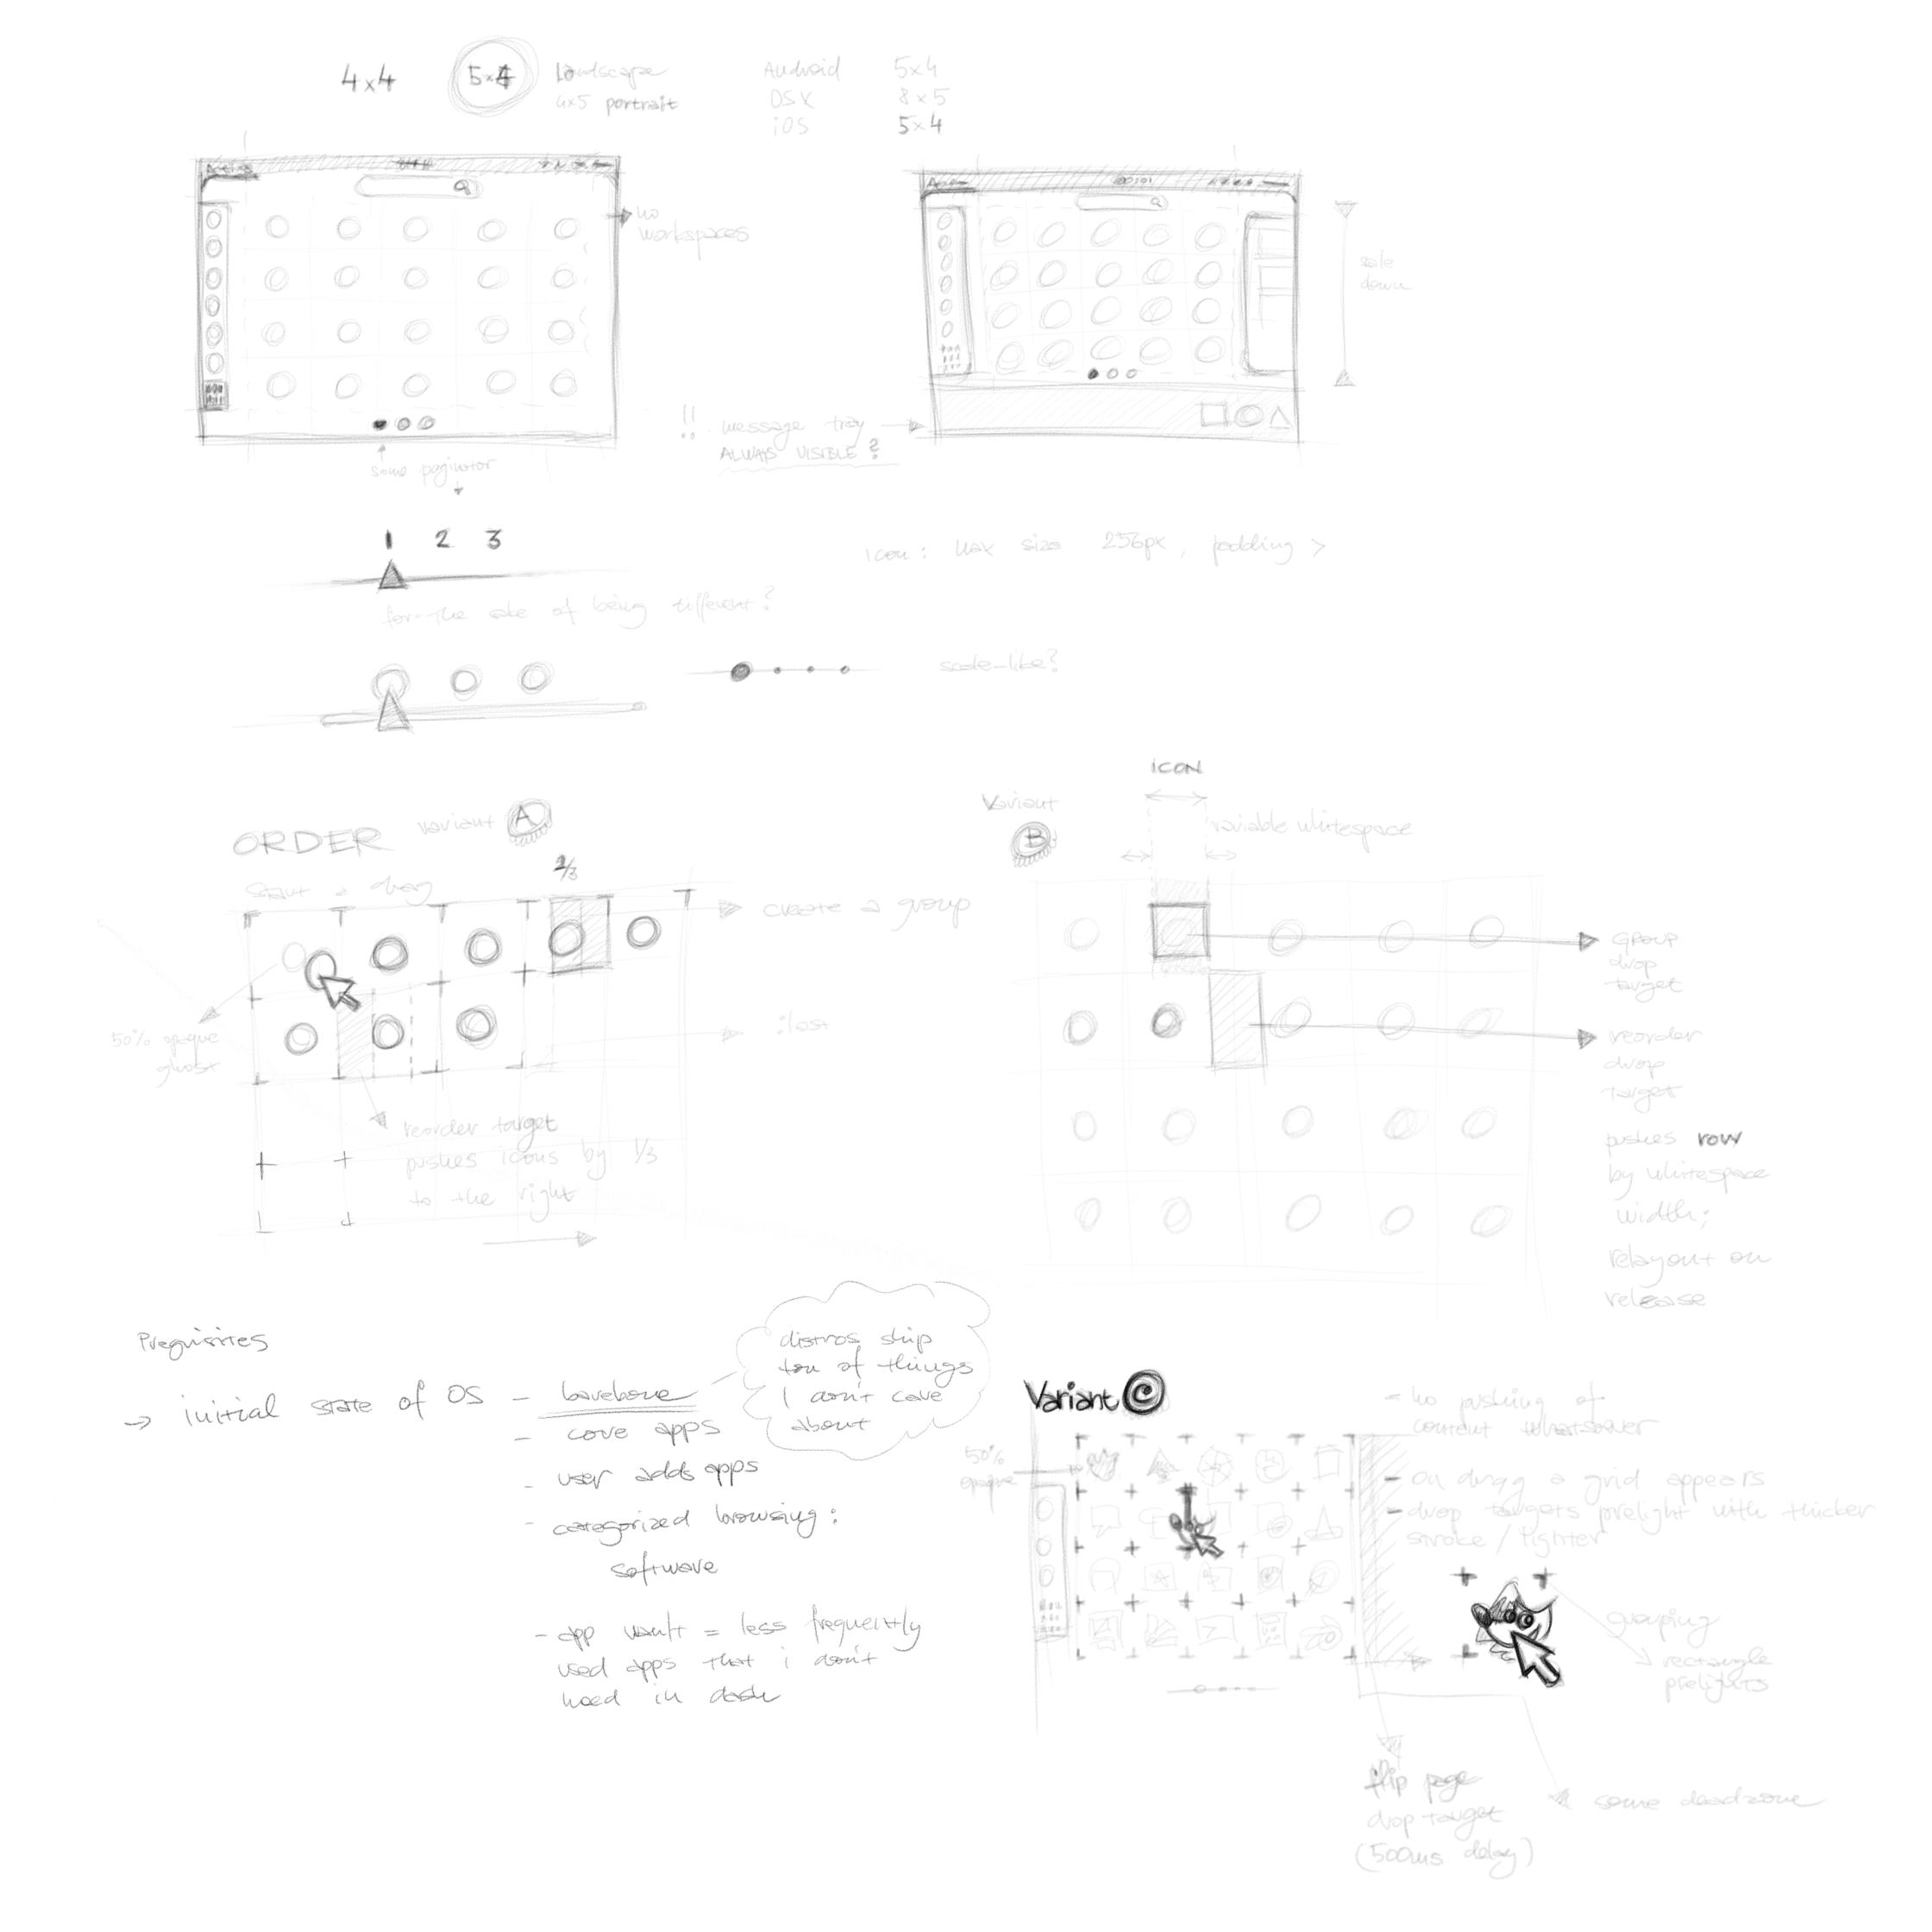 4x4
5x4
Landscape
4x5 portrait
Android 5x4
OSX 8x5
iOS 5x4
no
workspaces
some paginator
!! message tray
ALWAYS VISIBLE?
down
1 2 3
for the sake of being different?
Icon: max size 256px, padding >
scale-like?
ORDER variant A
start = drag
1/3
create a group
:last
50% opaque
ghost
reorder target
pushes icons by 1/3
to the right
Variant
B
ICON
variable whitespace
group
drop
target
reorder
drop
target
pushes row
by whitespace
width;
relayout on
release
Prequisites
→ initial state of OS - barebone
- core apps
- user adds apps
- categorized browsing:
software
- app vault = less frequently
used apps that i don't
need in dash
distros ship
ton of things
I don't care
about
Variant C
50%
opaque
- no pushing of
content whatsoever
- on drag a grid appears
- drop targets prelight with thicker
stroke / lighter
grouping
rectangle
prelights
flip page
drop target
(500ms delay)
some deadzone